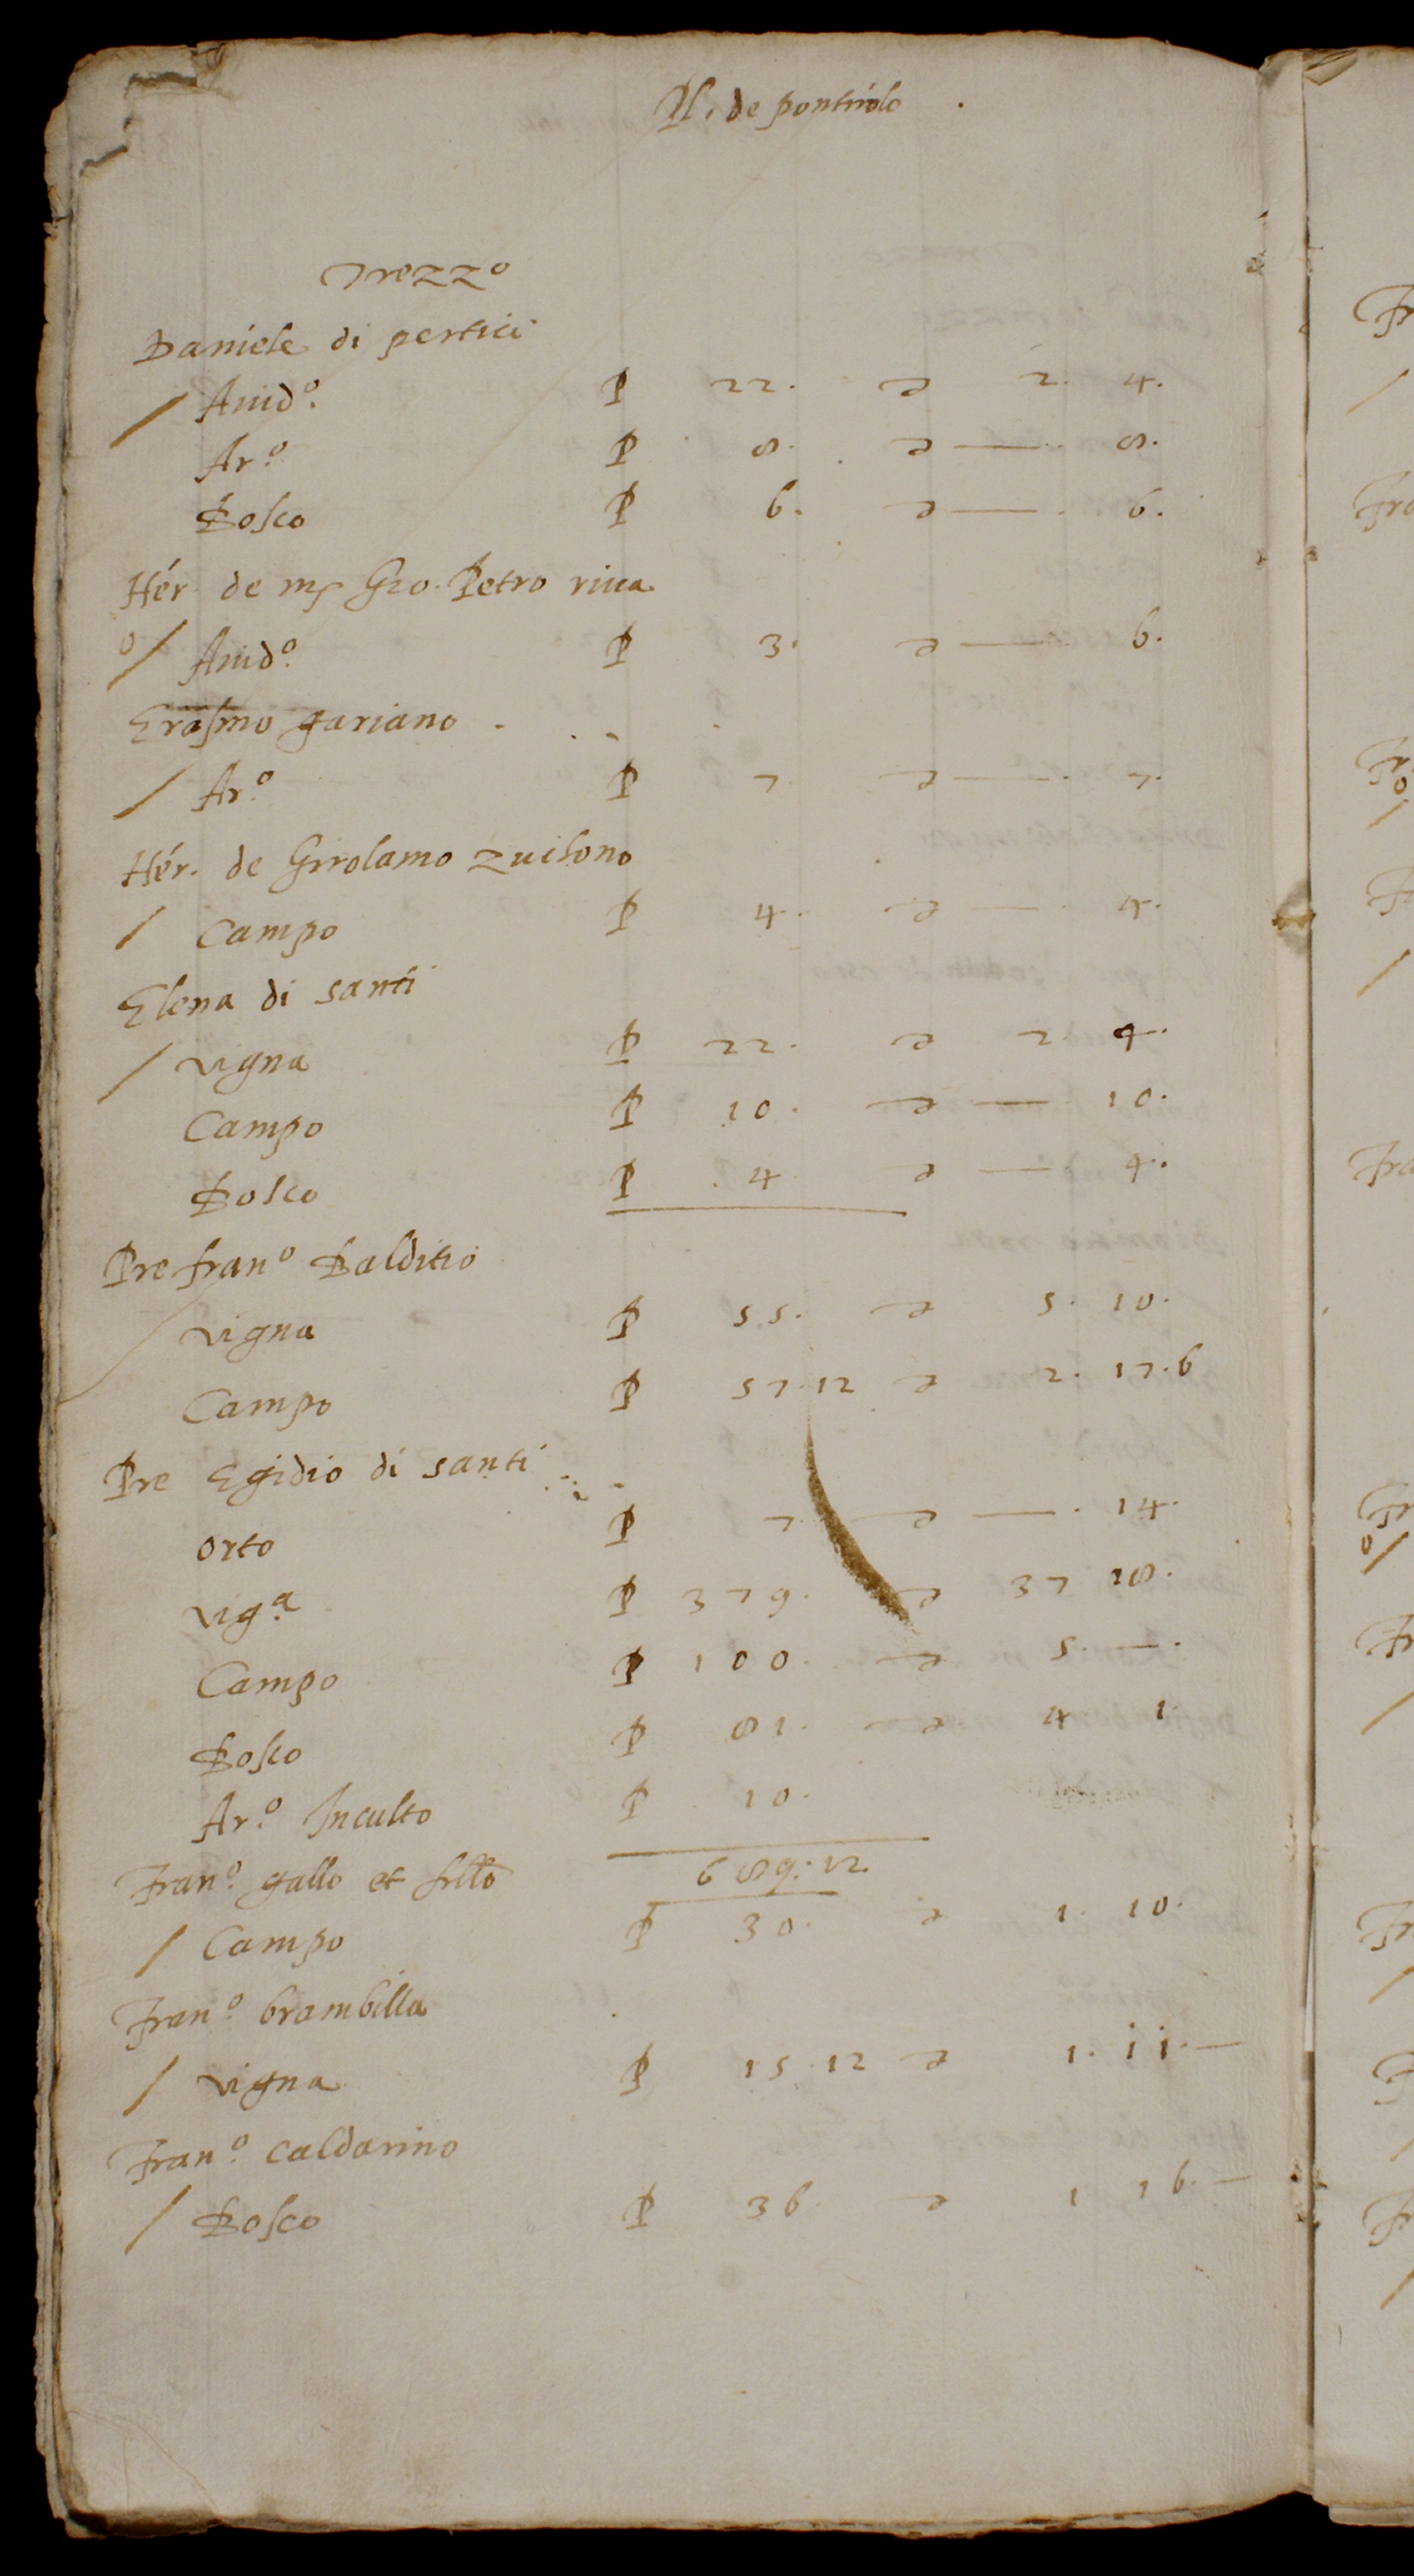 Pl. de pontirolo
Trezzo
Daniele di pertici
/ Auid.º P 22. e 2. 4.
Ar.º P 8. e — 8.
Bosco P 6. e — 6.
Hér. de mr Gio. Petro riua
0/ Auid.º P 3. e — 6.
Erasmo gariano
/ Ar.º P 7 e — 7.
Hér. de Girolamo
/ Campo P 4. e — 4.
Elena di santi
/ vigna P 22. e 2. 4.
Campo P 10. e — 10.
Bosco P 4 e — 4.
Pre fran.º Balditio
/ vigna P 55. e 5. 10.
Campo P 57.12 e 2. 17.6
Pre Egidio di santi
orto P 7. e — 14.
vig.ª P 379. e 37 18.
Campo P 100. e 5. —.
Bosco P 81. e 4 1.
Ar.º Inculto P 10.
Fran.º gallo et frllo 689:12
/ Campo P 30. e 1. 10.
Fran.º brambilla
/ vigna P 15.12 e 1. 11.—
Fran.º Caldarino
/ Bosco P 36. e 1 16.—
Fr
/
Fra
Fr
0
/
/
Fra
Fr
0/
Fr
/
Fr
/
Fr
/